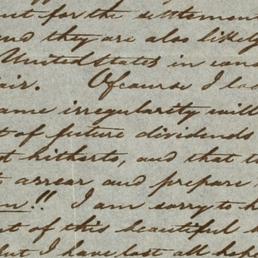 out for the settlement
and they are also likely
United States in con
air. Of course I loo
ame irregularity will
t of future dividends
t hitherto, and that t
t arrear and prepare
!! I am sorry to h
t of this beautiful
but I have lost all hope